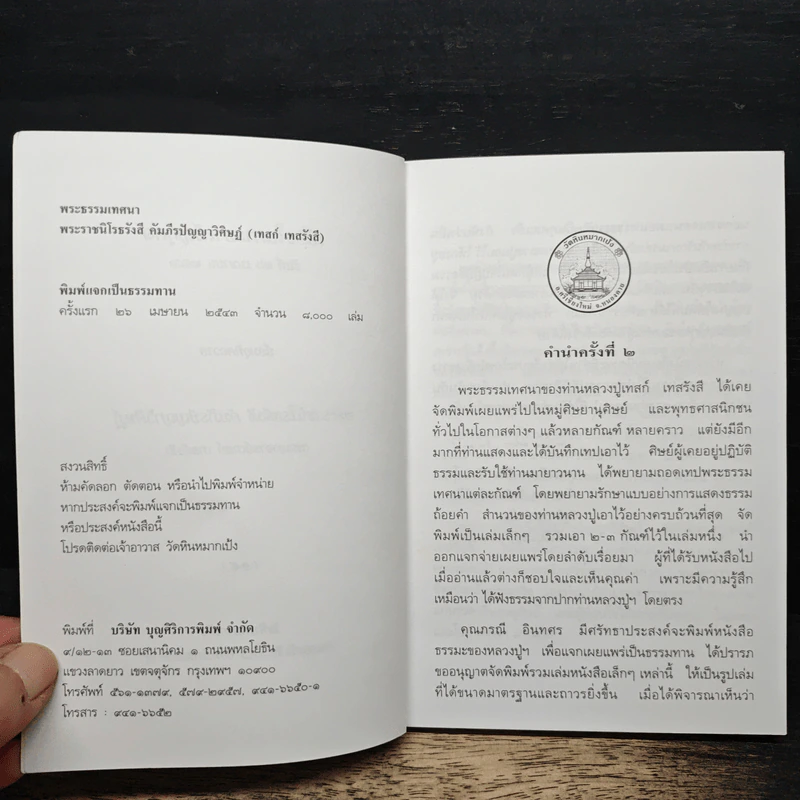 พระธรรมเทศนา
พระราชนิโรธรังสี คัมภีรปัญญาวิศิษฏ์ (เทสก์ เทสรังสี)
พิมพ์แจกเป็นธรรมทาน
ครั้งแรก ๒๖ เมษายน ๒๕๔๓ จำนวน ๘,๐๐๐ เล่ม
สงวนสิทธิ์
ห้ามคัดลอก ตัดตอน หรือนำไปพิมพ์จำหน่าย
หากประสงค์จะพิมพ์แจกเป็นธรรมทาน
หรือประสงค์หนังสือนี้
โปรดติดต่อเจ้าอาวาส วัดหินหมากเป้ง
พิมพ์ที่ บริษัท บุญศิริการพิมพ์ จำกัด
๙/๑๒-๑๓ ซอยเสนานิคม ๑ ถนนพหลโยธิน
แขวงลาดยาว เขตจตุจักร กรุงเทพฯ ๑๐๙๐๐
โทรศัพท์ ๕๖๑-๑๓๗๙, ๕๗๙-๒๙๕๗, ๙๔๑-๖๖๕๐-๑
โทรสาร : ๙๔๑-๖๖๕๒
วัดหินหมากเป้ง
อ.ศรีเชียงใหม่ จ.หนองคาย
คำนำครั้งที่ ๒
พระธรรมเทศนาของท่านหลวงปู่เทสก์ เทสรังสี ได้เคย
จัดพิมพ์เผยแพร่ไปในหมู่ศิษยานุศิษย์ และพุทธศาสนิกชน
ทั่วไปในโอกาสต่างๆ แล้วหลายกัณฑ์ หลายคราว แต่ยังมีอีก
มากที่ท่านแสดงและได้บันทึกเทปเอาไว้ ศิษย์ผู้เคยอยู่ปฏิบัติ
ธรรมและรับใช้ท่านมายาวนาน ได้พยายามถอดเทปพระธรรม
เทศนาแต่ละกัณฑ์ โดยพยายามรักษาแบบอย่างการแสดงธรรม
ถ้อยคำ สำนวนของท่านหลวงปู่เอาไว้อย่างครบถ้วนที่สุด จัด
พิมพ์เป็นเล่มเล็กๆ รวมเอา ๒-๓ กัณฑ์ไว้ในเล่มหนึ่ง นำ
ออกแจกจ่ายเผยแพร่โดยลำดับเรื่อยมา ผู้ที่ได้รับหนังสือไป
เมื่ออ่านแล้วต่างก็ชอบใจและเห็นคุณค่า เพราะมีความรู้สึก
เหมือนว่า ได้ฟังธรรมจากปากท่านหลวงปู่ฯ โดยตรง
คุณภรณี อินทศร มีศรัทธาประสงค์จะพิมพ์หนังสือ
ธรรมะของหลวงปู่ฯ เพื่อแจกเผยแพร่เป็นธรรมทาน ได้ปรารภ
ขออนุญาตจัดพิมพ์รวมเล่มหนังสือเล็กๆ เหล่านี้ ให้เป็นรูปเล่ม
ที่ได้ขนาดมาตรฐานและถาวรยิ่งขึ้น เมื่อได้พิจารณาเห็นว่า